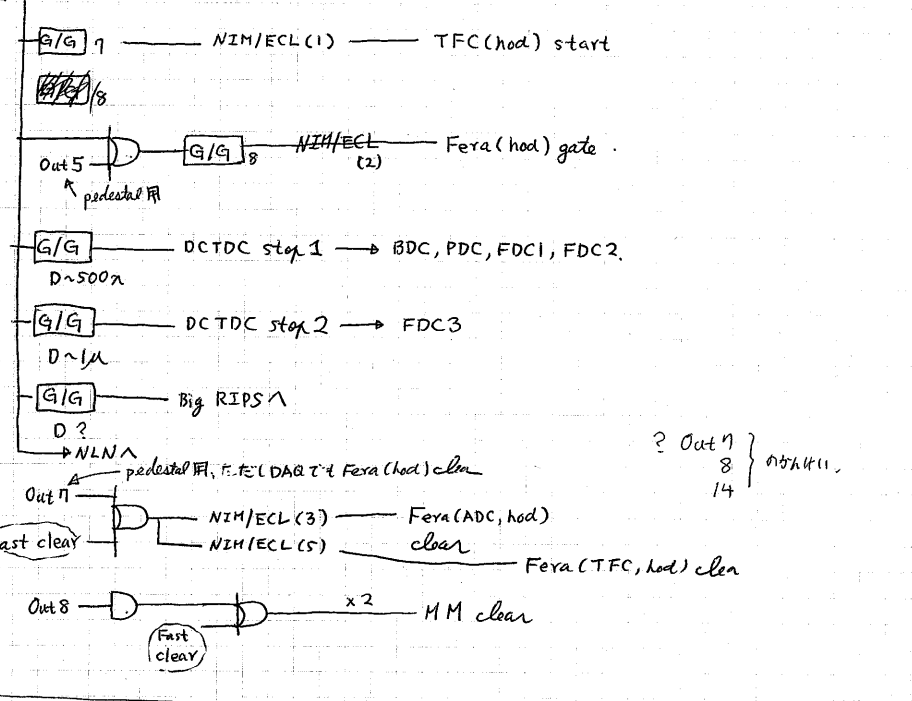 G/G 7 NIM/ECL(1) TFC(hod) start
/8
Out 5 G/G 8 NIM/ECL (2) Fera(hod) gate.
pedestal用
G/G DCTDC stop 1 → BDC, PDC, FDC1, FDC2.
D~500n
G/G DCTDC stop 2 → FDC3
D~1μ
G/G Big RIPSへ
D ?
NLNへ
pedestal用、ただしDAQでも Fera(hod) clear
? Out 7
8
14
のかんけい、
Out 7 NIM/ECL(3) Fera(ADC, hod)
clear
Fast clear NIM/ECL(5) Fera(TFC, hod) clear
Out 8 ×2 MM clear
Fast
clear